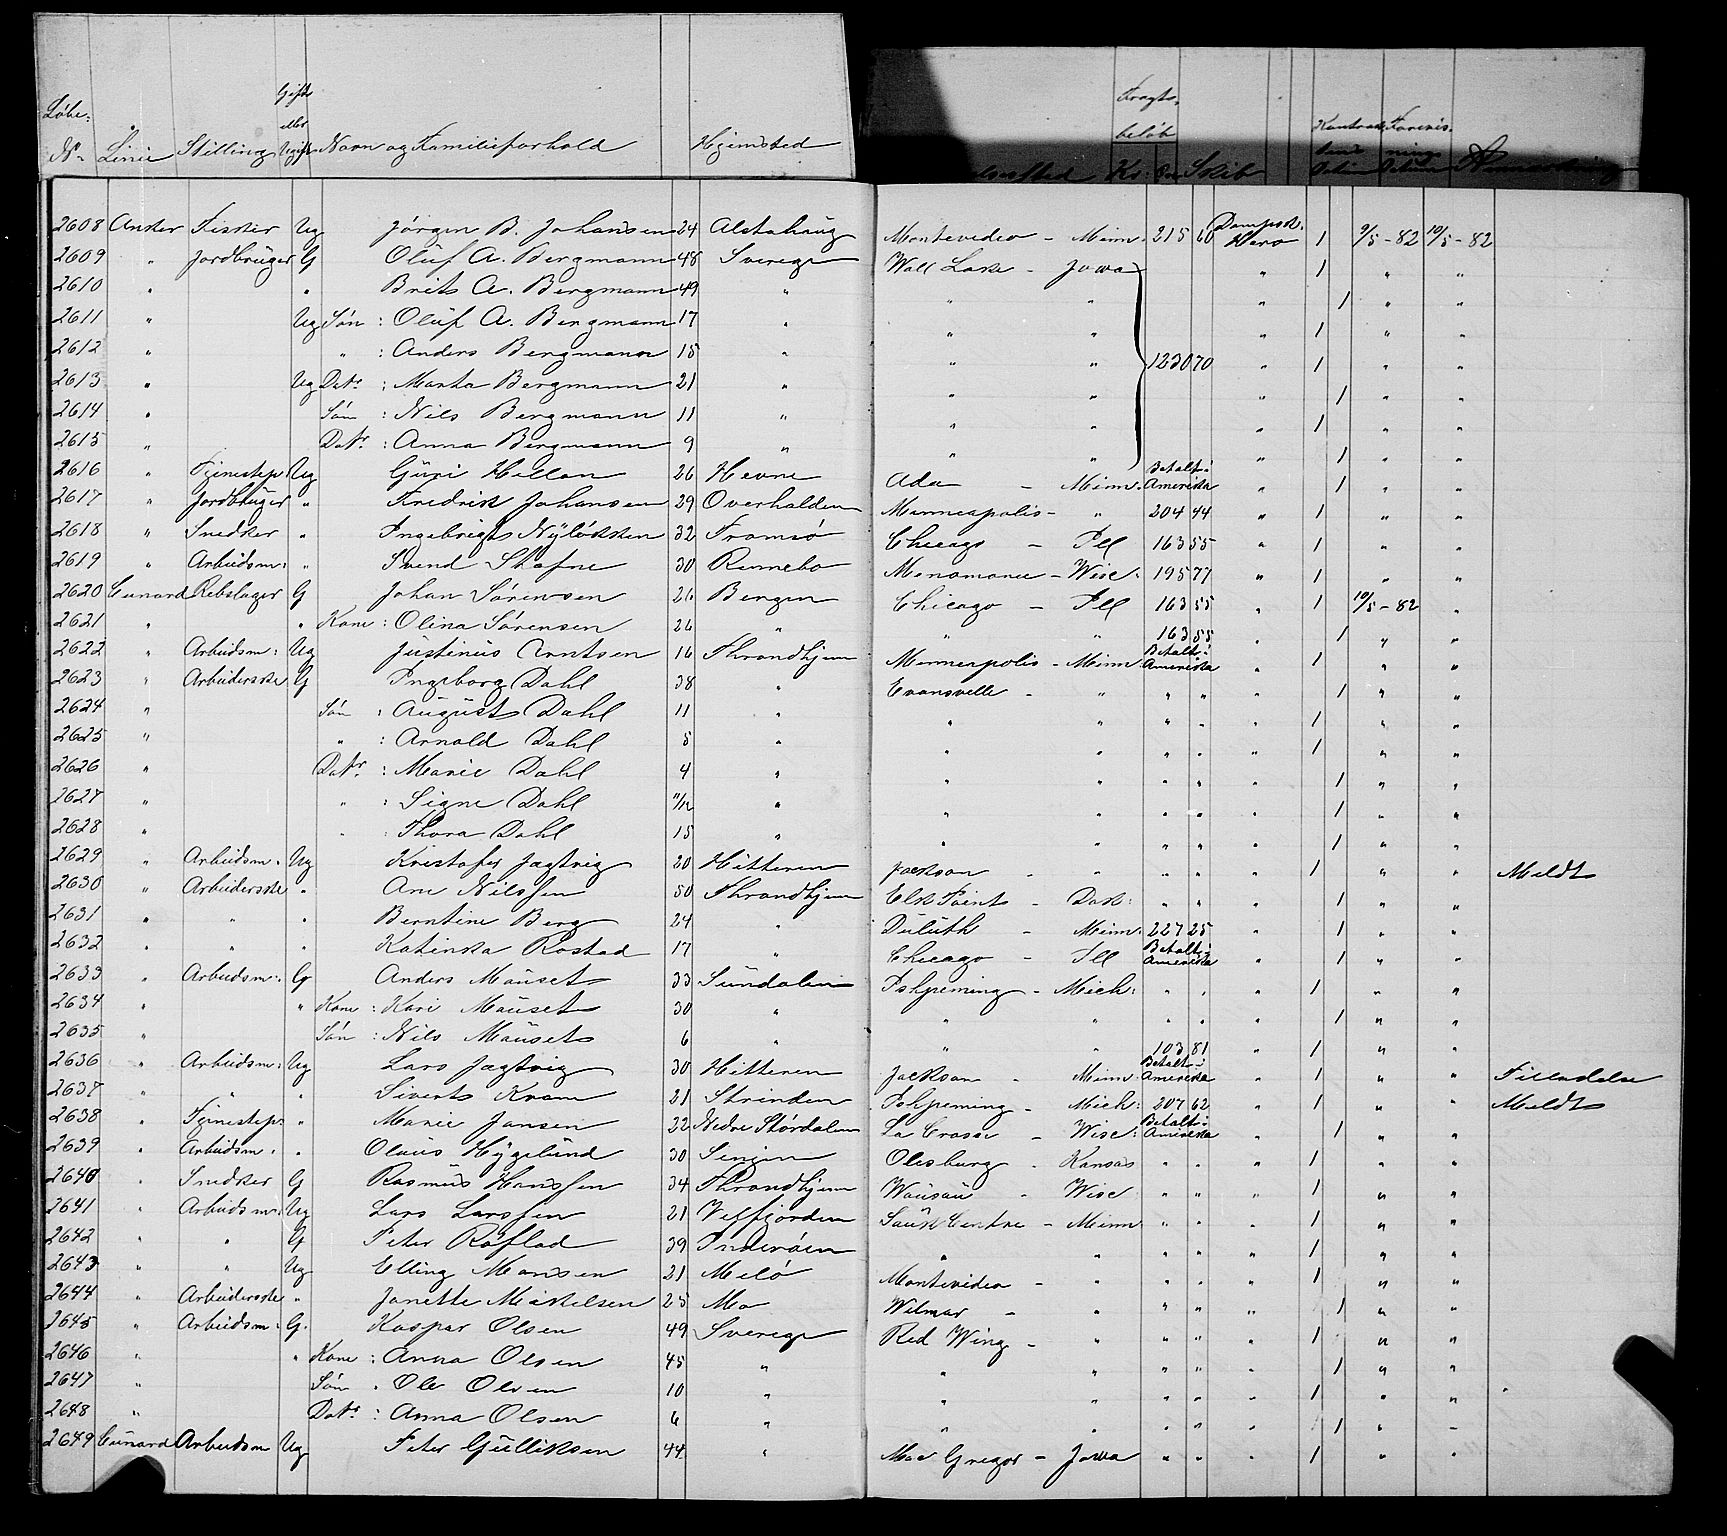 Løbe: Nº Linie Stilling Gift eller Ugift Navn og Familieforhold Hjemsted Fragtbeløb Kr: Øre Skib
2608 Anker Fisker Ug Jørgen B. Johansen 24 Alstahaug Montevideo - Minn. 215 60 Dampsk. Hero 1 9/5 - 82 10/5 - 82
2609 " Jordbruger G Oluf A. Bergmann 48 Sverige Wall Lake - Jowa " 1 " "
2610 " " Brit A. Bergmann 49 " " " " 1 " "
2611 " Ug Søn : Oluf A. Bergmann 17 " " " " 1 " "
2612 " " : Anders Bergmann 15 " " " 1230 70 " 1 " "
2613 " Ug Datr : Marta Bergmann 21 " " " " 1 " "
2614 " Søn : Nils Bergmann 11 " " " " 1 " "
2615 " Datr : Anna Bergmann 9 " " " " 1 " "
2616 " Tjenestep. Ug Guri Hellan 26 Hevne Ada - Minn. Betalt i Amerika " 1 " "
2617 " Jordbruger " Fredrik Johansen 29 Overhalden Minneapolis - " 204 44 " 1 " "
2618 " Snedker " Ingebrigt Nyløkken 32 Tromsø Chicago - Ill 163 55 " 1 " "
2619 " Arbeidsm: " Svend Skofne 30 Rennebo Menomonee - Wisc: 195 77 " 1 " "
2620 Cunard Rebslager G Johan Sørensen 26 Bergen Chicago - Ill 163 55 " 1 10/5 - 82 "
2621 " " Kone : Olina Sørensen 26 " " " 163 55 " 1 " "
2622 " Arbeidsm : Ug Justinus Arntsen 16 Throndhjem Minneapolis - Minn Betalt i Amerika " 1 " "
2623 " Arbeiderske G Ingeborg Dahl 38 " Evansville - " " " " 1 " "
2624 " Søn : August Dahl 11 " " " " " " 1 " "
2625 " " : Arnold Dahl 8 " " " " " " 1 " "
2626 " Datr : Marie Dahl 4 " " " " " " 1 " "
2627 " " : Signe Dahl 11/12 " " " " " " 1 " "
2628 " " : Thora Dahl 15 " " " " " " 1 " "
2629 " Arbeidsm. Ug Kristofer Jægtvig 20 Hitteren Jackson - " " " " 1 " " Meldt
2630 " Arbeiderske " Ane Nilssen 50 Throndhjem Elk Point - Dak: " " " 1 " "
2631 " " " Berntine Berg 24 " Duluth - Minn. 227 25 " 1 " "
2632 " " " Katinka Rostad 17 " Chicago - Ill Betalt i Amerika " 1 " "
2633 " Arbeidsm: G Anders Mauset 33 Sundalen Ishpeming - Mich: " " " 1 " "
2634 " " Kone : Kari Mauset 30 " " " " " " 1 " "
2635 " Søn : Nils Mauset 6 " " " 103 81 " 1 " "
2636 " Arbeidsm : Ug Lars Jægtvig 30 Hitteren Jackson - Minn Betalt i Amerika " 1 " " Tilladelse
2637 " " " Sivert Kvam 21 Strinden Ishpeming - Mich: 207 62 " 1 " " Meldt
2638 " Tjenestep: " Marie Jansen 22 Nedre Størdalen La Crosse - Wisc: Betalt i Amerika " 1 " "
2639 " Arbeidsm. " Olaus Hygelund 30 Senjen Olesburg - Kansas " " " 1 " "
2640 " Snedker G Rasmus Hanssen 34 Throndhjem Wausau - Wisc " " " 1 " "
2641 " Arbeidsm: Ug Lars Larssen 21 Velfjorden Sauk Centre - Minn " " " 1 " "
2642 " " G Peter Røflad 39 Inderøen " " " " " 1 " "
2643 " " Ug Elling Monsen 21 Melø Montevideo - " " " " 1 " "
2644 " Arbeiderske " Janette Mikkelsen 25 Mo Wilmar - " " " " 1 " "
2645 " Arbeidsm. G. Kaspar Olsen 49 Sverige Red Wing - " " " " 1 " "
2646 " " Kone : Anna Olsen 45 " " " " " " 1 " "
2647 " Søn " Ole Olsen 10 " " " " " " 1 " "
2648 " Datr : Anna Olsen 6 " " " " " " 1 " "
2649 Cunard Arbeidsm Ug Peter Gulliksen 44 " Mac Gregor - Jowa " " " 1 " "